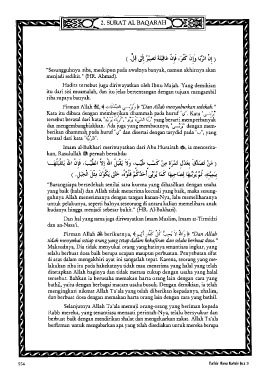 2. SURAT AL BAQARAH
( إِنَّ الرِّبَا وَإِنْ كَثُرَ، فَإِنَّ عَاقِبَتَهُ تَصِيْرُ إِلَى قُلٍّ )
"Sesungguhnya riba, meskipun pada awalnya banyak, namun akhirnya akan
menjadi sedikit." (HR. Ahmad).
Hadits tersebut juga diriwayatkan oleh Ibnu Majah. Yang demikian
itu dari sisi muamalah, dan itu jelas bertentangan dengan tujuan mengambil
riba supaya banyak.
Firman Allah "Dan Allah menyuburkan sedekah."
Kata itu dibaca dengan memberikan dhammah pada huruf Kata
tersebut berasal dari kata, yang berarti memperbanyak
dan mengembangbiakkan. Ada juga yang membacanya, dengan mem-
berikan dhammah pada huruf dan disertai dengan tasydid pada yang
berasal dari kata
Imam al-Bukhari meriwayatkan dari Abu Hurairah, ia mencerita-
kan, Rasulullah pernah bersabda:
( مَنْ تَصَدَّقَ بِعَدْلِ تَمْرَةٍ مِنْ كَسْبٍ طَيِّبٍ، وَلاَ يَقْبَلُ اللهُ إِلاَّ الطَّيِّبَ، فَإِنَّ اللهَ يَتَقَبَّلُهَا
بِيَمِيْنِهِ، ثُمَّ يُرَبِّيْهَا لِصَاحِبِهَا كَمَا يُرَبِّي أَحَدُكُمْ فَلُوَّهُ، حَتَّى يَكُوْنَ مِثْلَ الْجَبَلِ. )
"Barangsiapa bersedekah senilai satu kurma yang dihasilkan dengan usaha
yang baik (halal) dan Allah tidak menerima kecuali yang baik, maka sesung-
guhnya Allah menerimanya dengan tangan kanan-Nya, lalu memeliharanya
untuk pelakunya, seperti halnya seseorang di antara kalian memelihara anak
kudanya hingga menjadi sebesar bukit." (HR. Al-Bukhari).
Dan hal yang sama juga diriwayatkan Imam Muslim, Imam at-Tirmidzi
dan an-Nasa'i.
Firman Allah berikutnya, "Dan Allah
tidak menyukai setiap orang yang tetap dalam kekafiran dan selalu berbuat dosa."
Maksudnya, Dia tidak menyukai orang yang hatinya senantiasa ingkar, yang
selalu berbuat dosa baik berupa ucapan maupun perbuatan. Penyebutan sifat
di atas dalam mengakhiri ayat ini sangatlah tepat. Karena, seorang yang me-
lakukan riba itu pada hakekatnya tidak mau menerima yang halal yang telah
ditetapkan Allah baginya dan tidak merasa cukup dengan usaha yang halal
tersebut. Bahkan ia berusaha memakan harta orang lain dengan cara yang
bathil, yaitu dengan berbagai macam usaha busuk. Dengan demikian, ia telah
mengingkari nikmat Allah Ta'ala yang telah diberikan kepadanya, zhalim,
dan berbuat dosa dengan memakan harta orang lain dengan cara yang bathil.
Selanjutnya Allah Ta'ala memuji orang-orang yang beriman kepada
Rabb mereka, yang senantiasa mentaati perintah-Nya, selalu bersyukur dan
berbuat baik dengan mendirikan shalat dan mengeluarkan zakat. Allah Ta'ala
berfirman untuk mengabarkan apa yang telah disediakan untuk mereka berupa